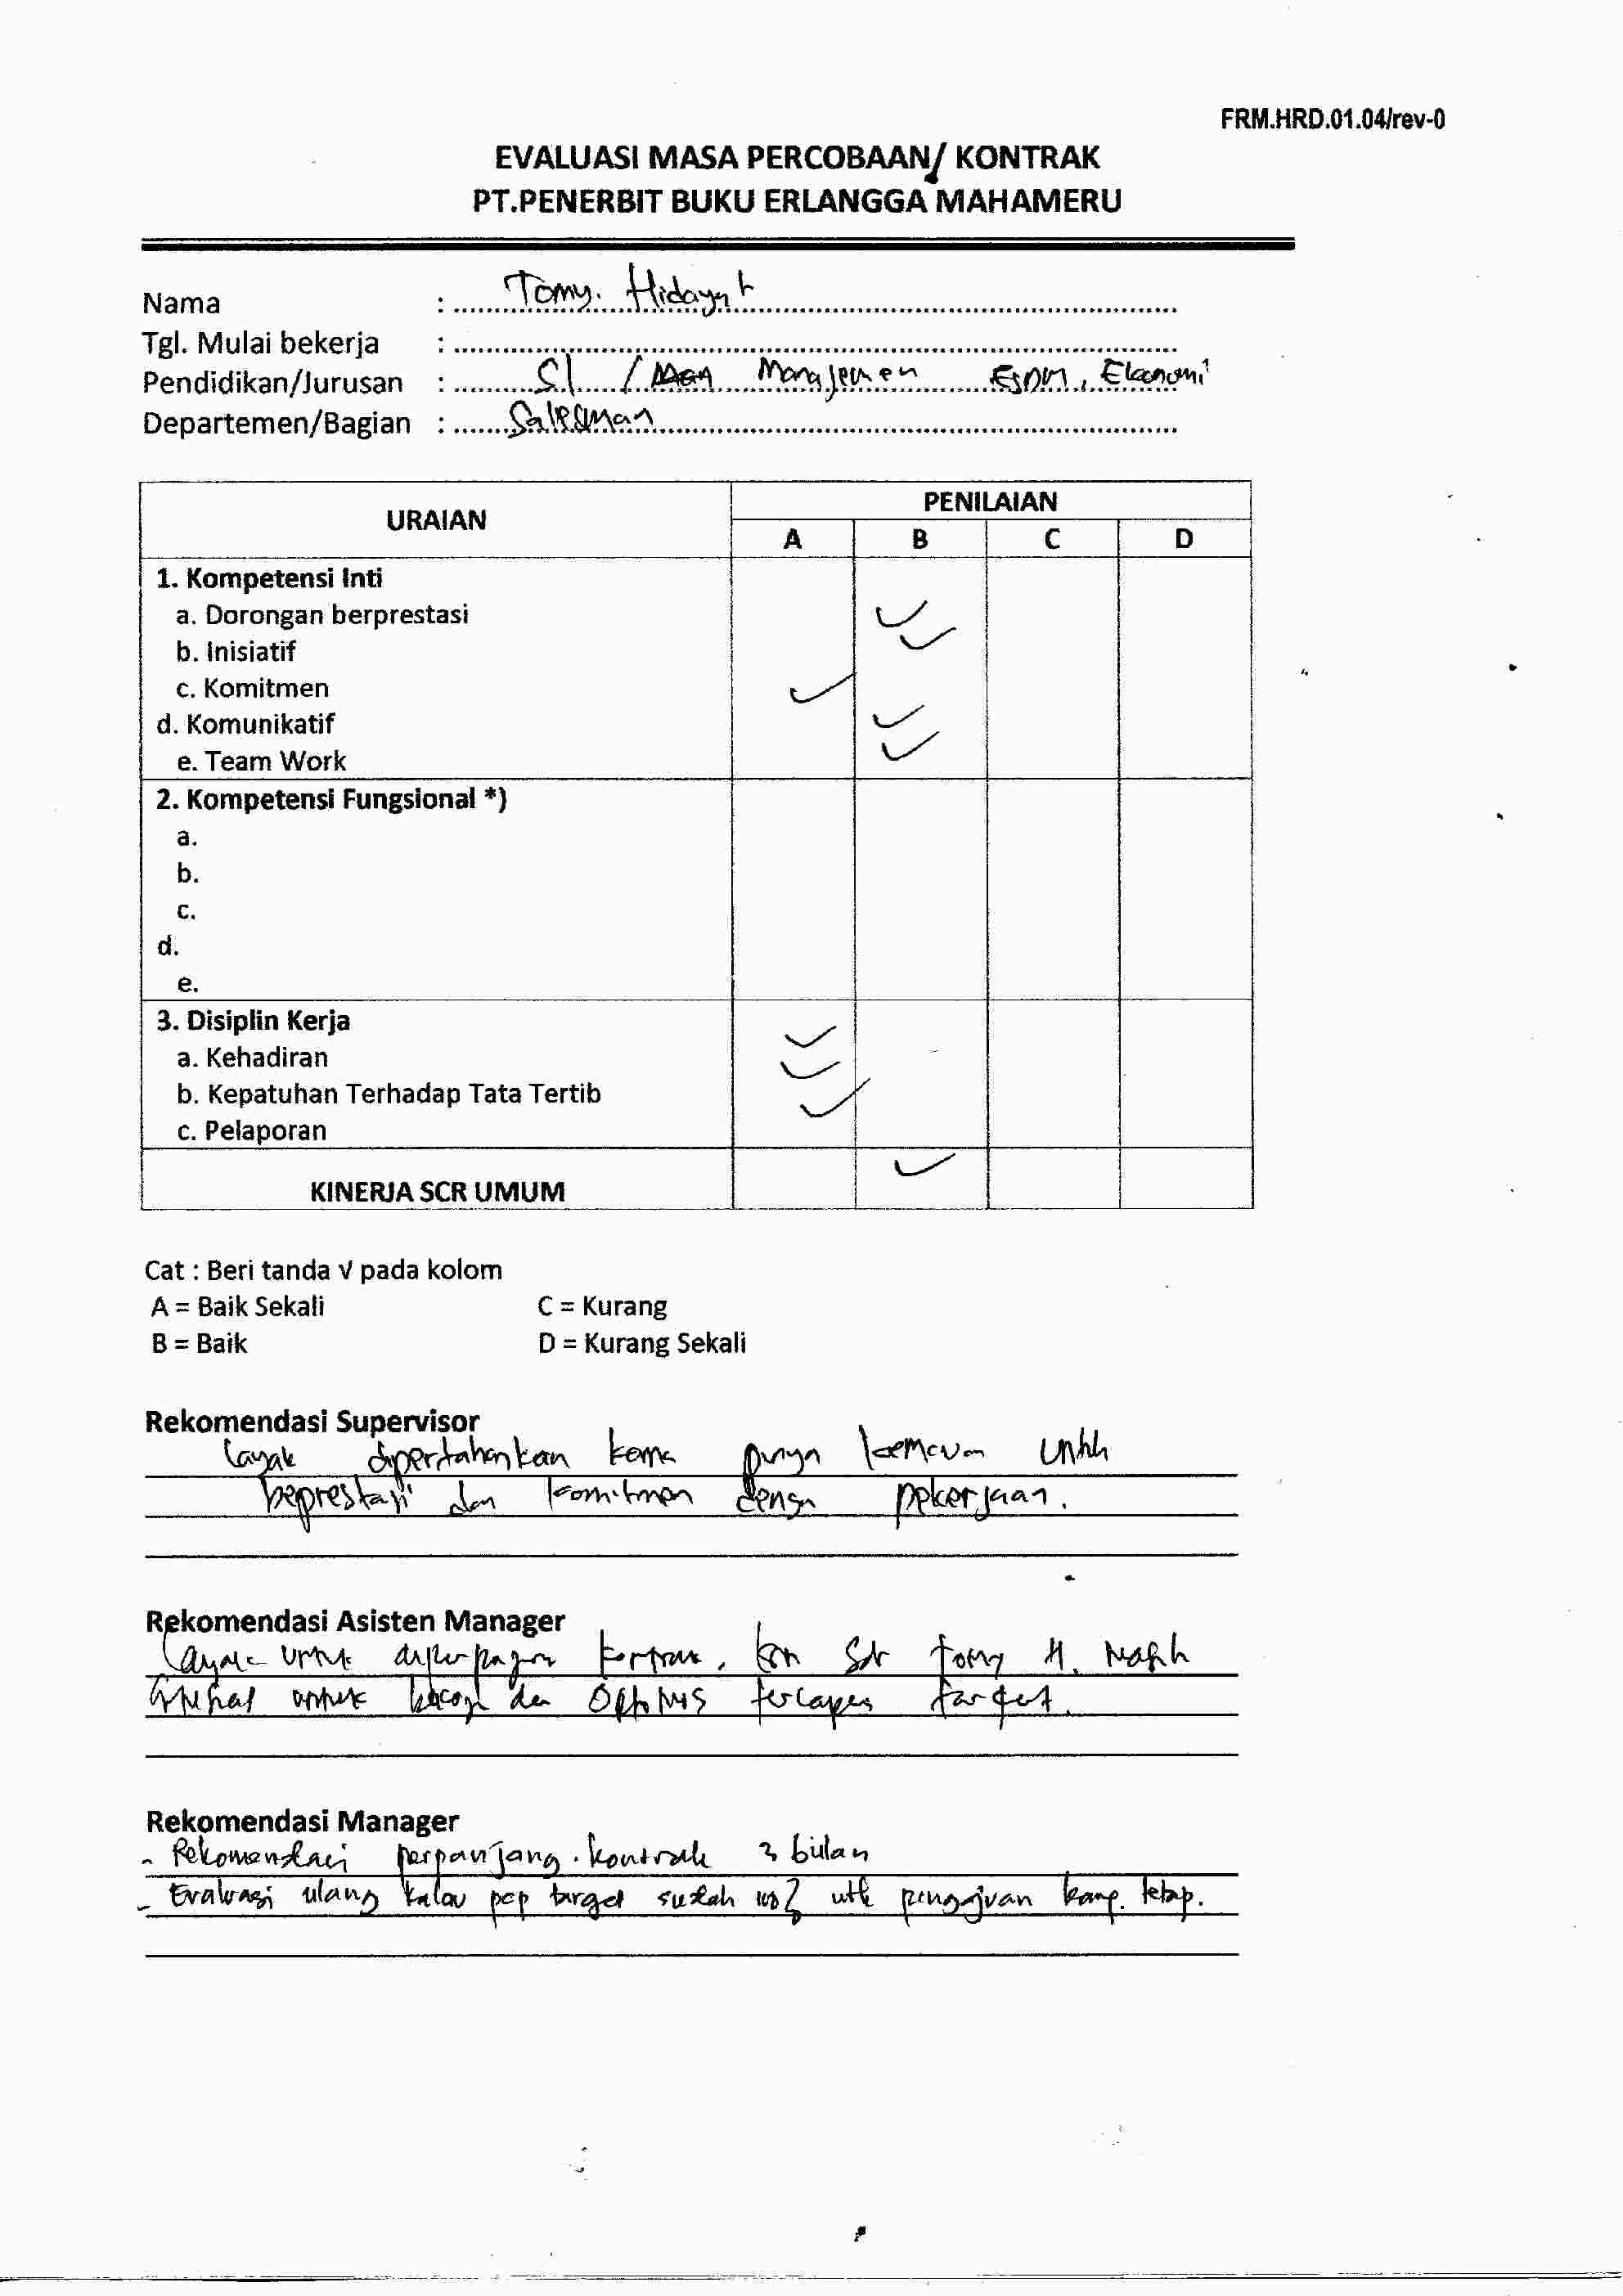 FRM.HRD.01.04/rev-0
EVALUASI MASA PERCOBAAN/ KONTRAK
PT.PENERBIT BUKU ERLANGGA MAHAMERU
Nama : Tomy. Hidayat
Tgl. Mulai bekerja :
Pendidikan/Jurusan : S1 / Manajemen Ekonomi
Departemen/Bagian : Salesman
URAIAN PENILAIAN
A B C D
1. Kompetensi Inti
a. Dorongan berprestasi ✓
b. Inisiatif ✓
c. Komitmen ✓
d. Komunikatif ✓
e. Team Work ✓
2. Kompetensi Fungsional *)
a.
b.
c.
d.
e.
3. Disiplin Kerja
a. Kehadiran ✓
b. Kepatuhan Terhadap Tata Tertib ✓
c. Pelaporan ✓
KINERJA SCR UMUM ✓
Cat : Beri tanda √ pada kolom
A = Baik Sekali C = Kurang
B = Baik D = Kurang Sekali
Rekomendasi Supervisor
Layak dipertahankan karna punya kemauan untuk
berprestasi dan komitmen dengan pekerjaan.
Rekomendasi Asisten Manager
Layak untuk kontrak, Sdr Tomy H. Masih
untuk dan Optimis tercapai target.
Rekomendasi Manager
- Rekomendasi perpanjang. kontrak 3 bulan
- Evaluasi ulang kalau pcp target sudah 100% utk pengajuan kary. tetap.